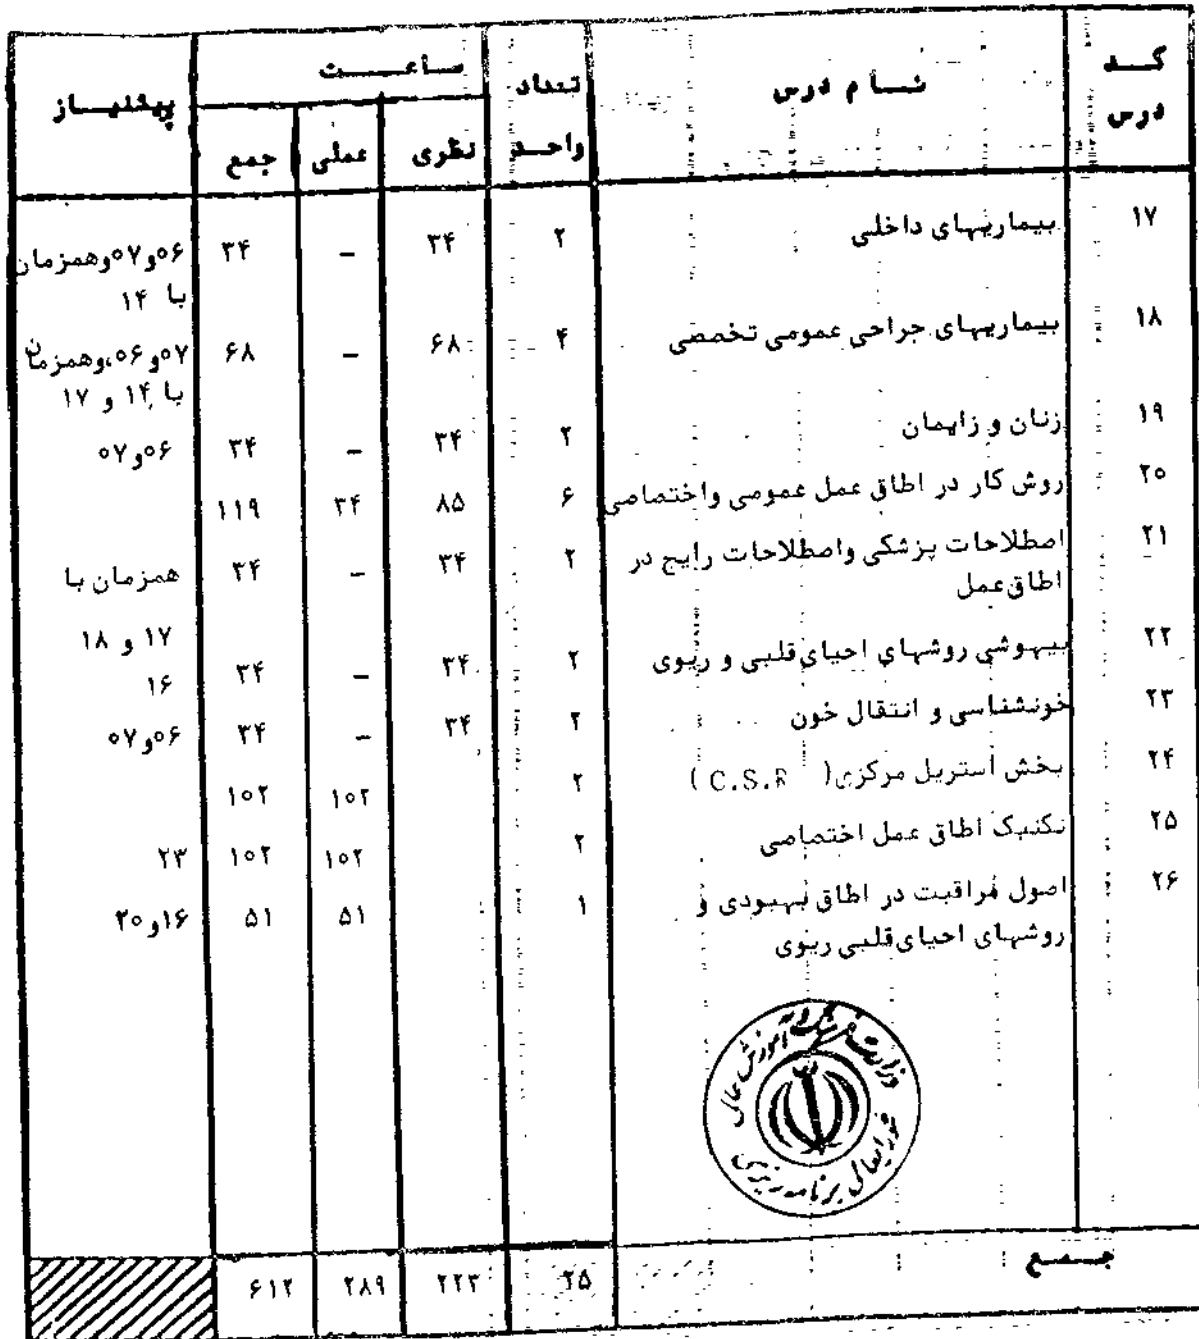 کد درس نام درس تعداد واحد ساعت پیشنیاز
نظری عملی جمع
۱۷ بیماریهای داخلی ۲ ۳۴ – ۳۴ ۰۶و۰۷وهمزمان
با ۱۴
۱۸ بیماریهای جراحی عمومی تخصصی ۴ ۶۸ – ۶۸ ۰۷و۰۶،وهمزمان
با ۱۴ و ۱۷
۱۹ زنان و زایمان ۲ ۳۴ – ۳۴ ۰۶و۰۷
۲۰ روش کار در اطاق عمل عمومی واختصاصی ۶ ۸۵ ۳۴ ۱۱۹
۲۱ اصطلاحات پزشکی واصطلاحات رایج در ۲ ۳۴ – ۳۴ همزمان با
اطاق عمل
۱۷ و ۱۸
۲۲ بیهوشی روشهای احیای قلبی و ریوی ۲ ۳۴ – ۳۴ ۱۶
۲۳ خونشناسی و انتقال خون ۲ ۳۴ – ۳۴ ۰۶و۰۷
۲۴ بخش استریل مرکزی (C.S.R) ۲ ۱۰۲ ۱۰۲
۲۵ تکنیک اطاق عمل اختصاصی ۲ ۱۰۲ ۱۰۲ ۲۳
۲۶ اصول مراقبت در اطاق بهبودی و ۱ ۵۱ ۵۱ ۱۶و۲۰
روشهای احیای قلبی ریوی
وزارت فرهنگ و آموزش عالی
شورایعالی برنامه ریزی
جمع ۲۵ ۲۲۳ ۲۸۹ ۶۱۲